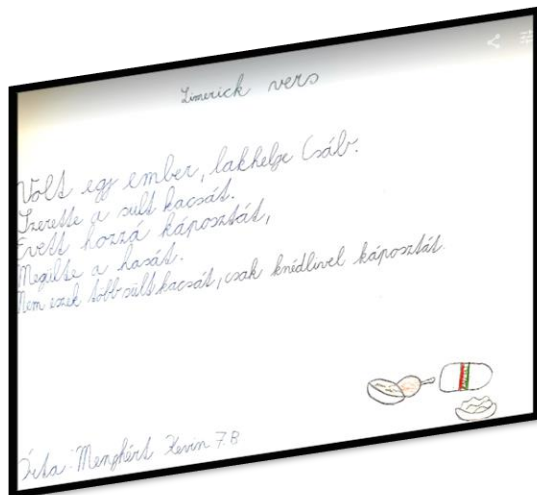 Limerick vers
Volt egy ember, lakhelye Csáb.
Szerette a sült kacsát.
Evett hozzá káposztát,
Megülte a hasát.
Nem eszek több sült kacsát, csak knédlivel káposztát.
Írta: Menyhért Kevin 7.B